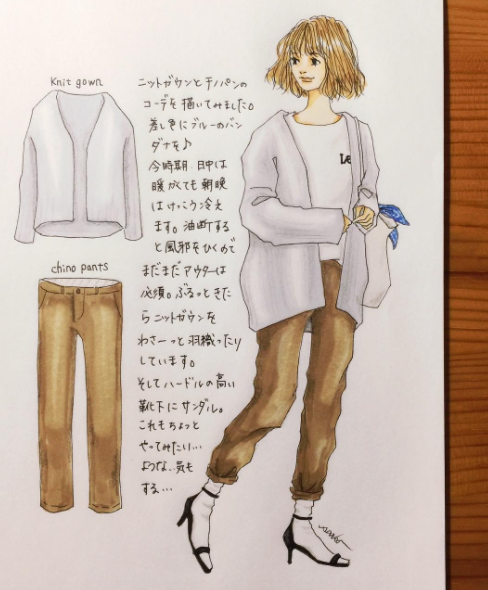 Knit gown
ニットガウンとチノパンの
コーデを描いてみました。
差し色にブルーのバン
ダナを♪
今時期 日中は
暖かくても朝晩
はけっこう冷え
ます。油断する
と風邪をひくので
まだまだアウターは
必須。ぶるっときた
らニットガウンを
わさーっと羽織ったり
しています。
そしてハードルの高い
靴下にサンダル。
これもちょっと
やってみたい…
ような、気も
する…
chino pants
Le